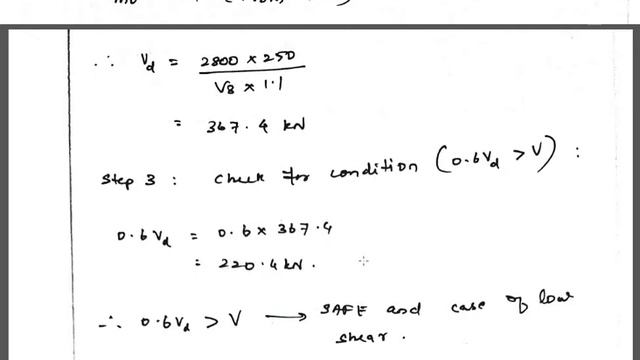 ∴ Vd = 2800 × 250
√3 × 1.1
= 367.4 kN
Step 3 : Check for condition (0.6Vd > V) :
0.6Vd = 0.6 × 367.4
= 220.4 kN.
∴ 0.6Vd > V → SAFE and case of low
shear.